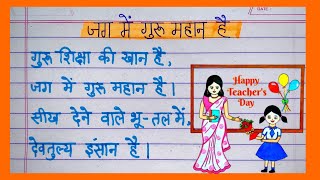 जग में गुरु महान है
गुरु शिक्षा की खान है,
जग में गुरु महान है।
सीख देने वाले भू-तल में,
देवतुल्य इंसान है।
Happy
Teacher's
Day